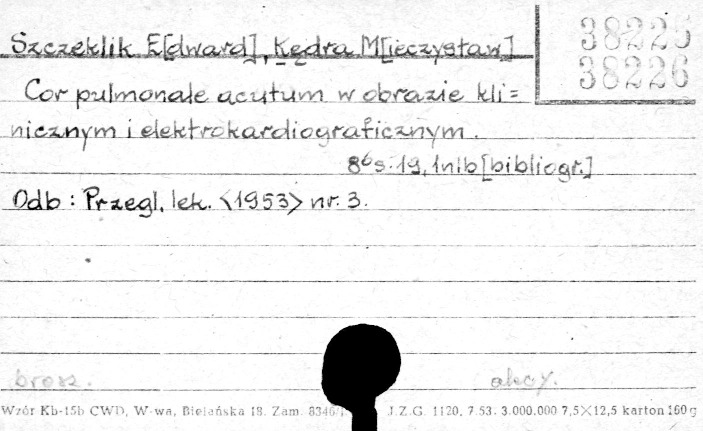 Szczeklik E[dward], Kędra M[ieczysław]
38225
38226
Cor pulmonale acutum w obrazie kli=
nicznym i elektrokardiograficznym.
8⁶s. 19, 1nlb [bibliogr.]
Odb: Przegl. lek. <1953> nr. 3.
brosz. akcy.
Wzór Kb-15b CWD, W-wa, Bielańska 18. Zam. 8346/ J.Z.G. 1120, 7.53. 3.000.000 7,5×12,5 karton 160 g